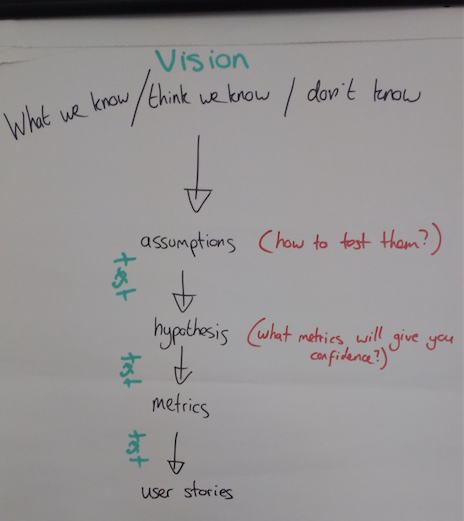 Vision
What we know / think we know / don't know
assumptions (how to test them?)
test
hypothesis (what metrics will give you
confidence?)
test
metrics
test
user stories